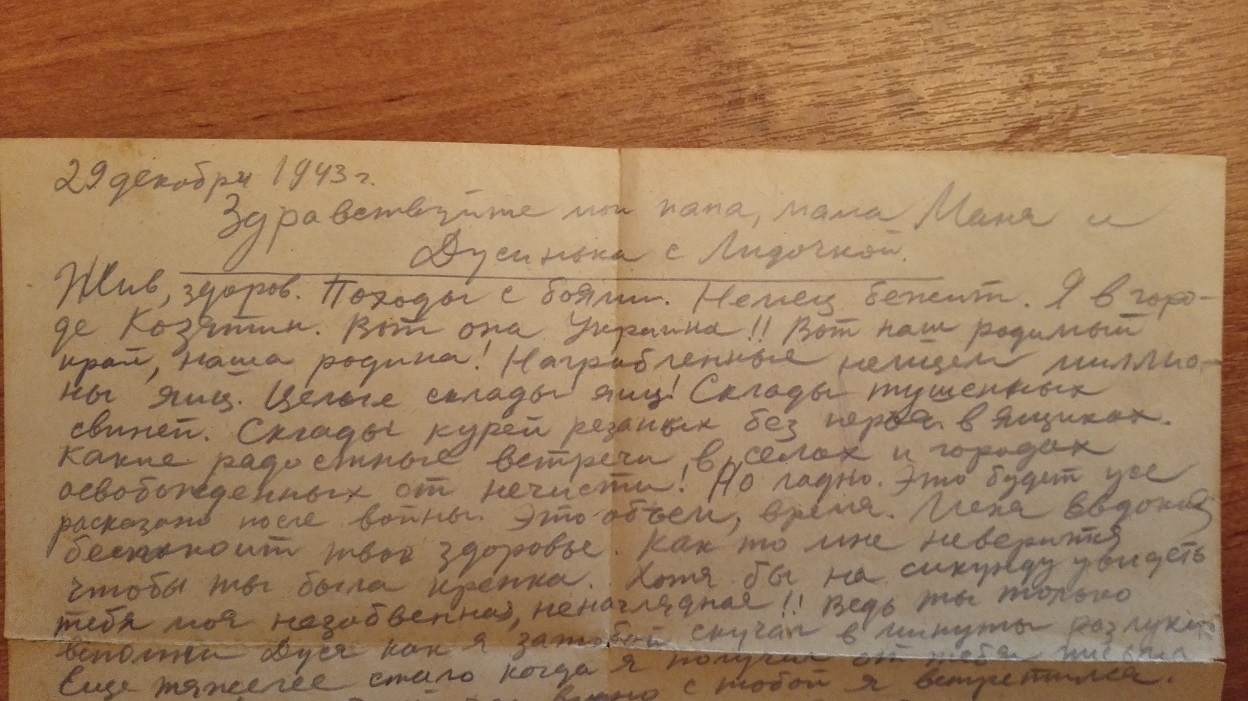 29 декабря 1943 г.
Здравствуйте мои папа, мама Маня и
Дусинька с Лидочкой.
Жив, здоров. Походы с боями. Немец бежит. Я в горо-
де Козятин. Вот она Украина!! Вот наш родимый
край, наша родина! Награбленные немцем миллио-
ны яиц. Целые склады яиц! Склады тушенных
свиней. Склады курей резаных без перья в ящиках.
Какие радостные встречи в селах и городах
освобожденных от нечисти! Но ладно. Это будет уже
расказано после войны. Это объем, время. Меня Евдокия
беспокоит твое здоровье. Как то мне неверится
чтобы ты была крепка. Хотя бы на сикунду увидеть
тебя моя незабвенная, ненаглядная!! Ведь ты только
вспомни Дуся как я затобой скучал в минуты разлуки
Еще тяжелее стало когда я получил от тебя письма
с тобой я встретился.